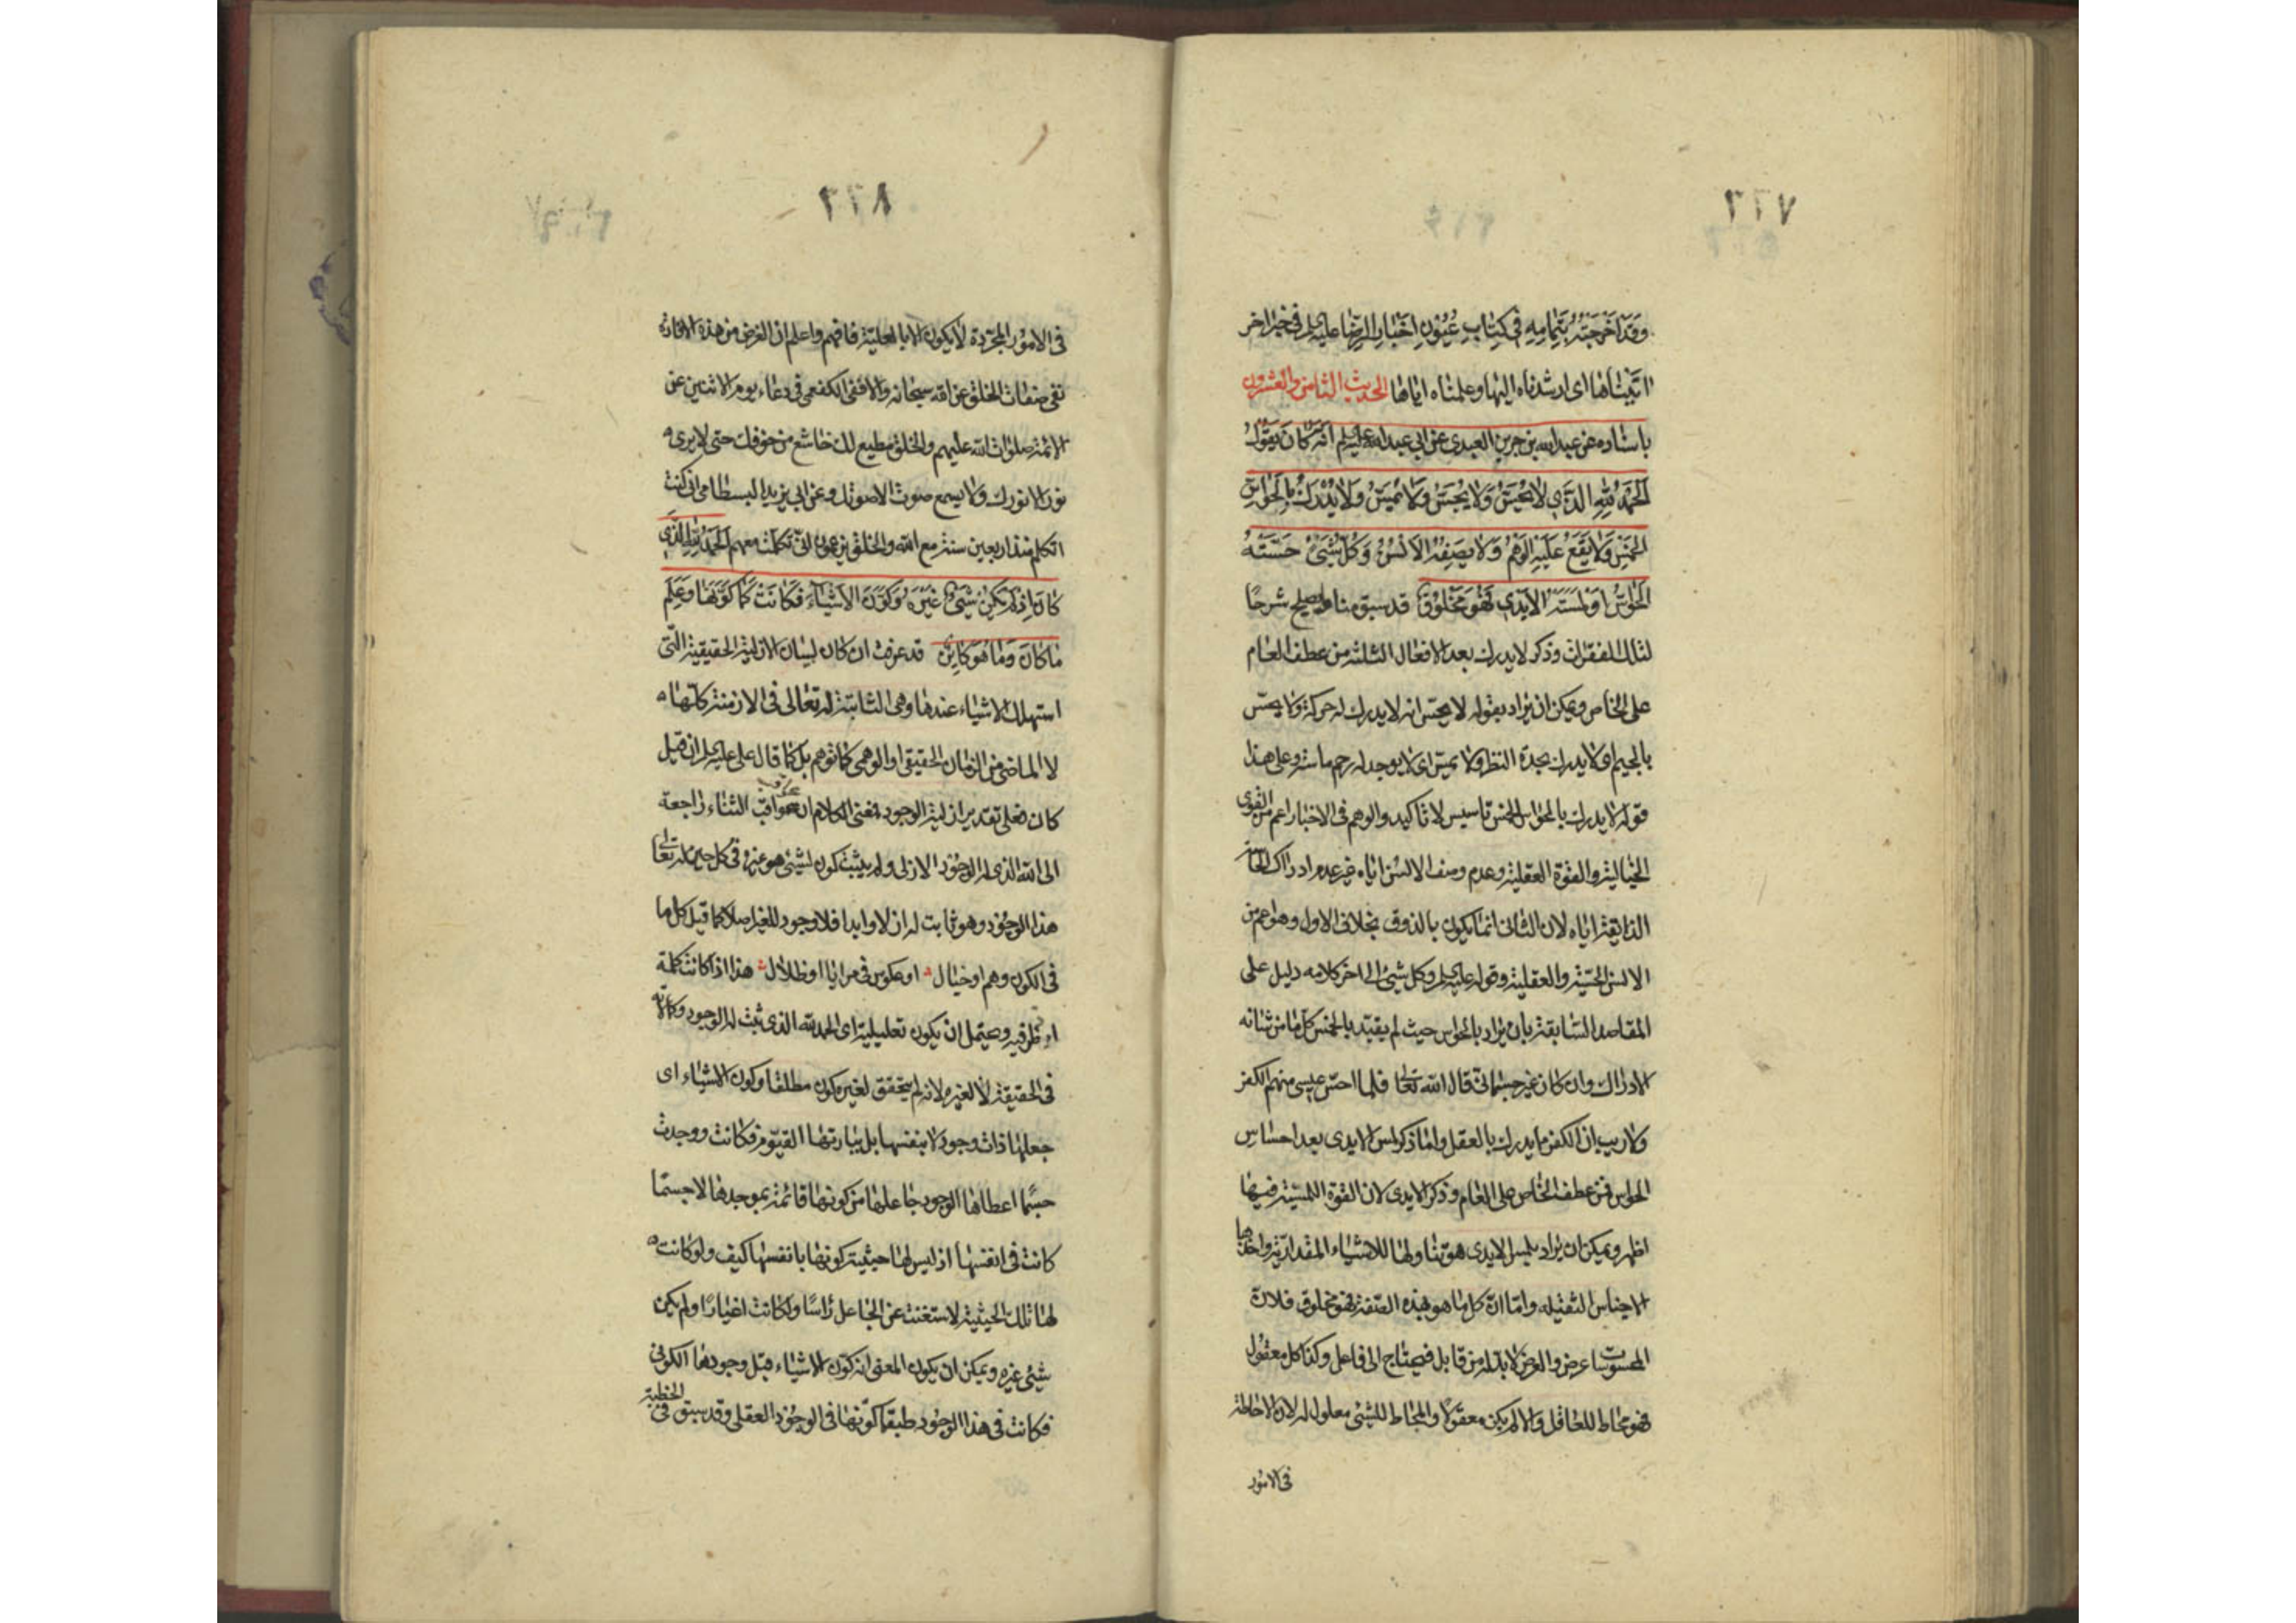 ٢٦٧
وقد اخرجته بتمامه في كتاب عيون اخبار الرضا عليه لم في خبر اخر
اثبتناها اى ارشدناه اليها وعلمناه اياها الحديث الثامن والعشرون
باسناده عن عبد الله بن جرير العبدى عن ابي عبد الله عليه لم انه كان يقول
الحمد لله الذي لا يحس ولا يجس ولا يمس ولا يدرك بالحواس
الخمس ولا يقع عليه الوهم ولا يصفه الالسن وكل شيئ حسته
الحواس او لمسته الايدي فهو مخلوق قد سبق منا ما يصلح شرحا
لتلك الفقرات وذكر لا يدرك بعد الافعال الثلثة من عطف العام
على الخاص ويمكن ان يراد بقوله لا يحس انه لا يدرك له حركة ولا يجس
بالجيم اى لا يدرك بحدة النظر ولا يمس اى لا يوجد له رحم ماسة وعلى هذا
قوله لا يدرك بالحواس الخمس تاسيس لا تاكيد والوهم في الاخبار اعم من القوى
الخيالية والقوة العقلية وعدم وصف الالسن اياه غير عدم ادراك الحاسة
الذائقة اياه لان الثانى انما يكون بالذوق بخلاف الاول وهو اعم من
الالسن الحسية والعقلية وقوله عليه لم وكل شيئ الى اخر كلامه دليل على
المقاصد السابقة بان يراد بالحواس حيث لم يقيد بالخمس كل ما من شانه
الادراك وان كان غير جسمانى قال الله تعالى فلما احس عيسى منهم الكفر
ولا ريب ان الكفر ما يدرك بالعقل واما ذكر لمس الايدى بعد احساس
الحواس فمن عطف الخاص على العام وذكر الايدى لان القوة اللمسية فيها
اظهر ويمكن ان يراد بلمس الايدى هو تناولها للاشياء المقدارية واخذها
الاجناس الثقيله واما ان كل ما هو بهذه الصفة فهو مخلوق فلان
المحسوسات اعرض والعرض لا بد له من قابل فيحتاج الى فاعل وكذا كل معقول
فهو محاط للعاقل والا لم يكن معقولا والمحاط للشيئ معلول له لان الاحاطة
فى الامور
٢٦٨
فى الامور المجردة لا يكون الا بالعلية فافهم واعلم ان الغرض من هذه الافادة
نفى صفات الخلق عن الله سبحانه والا ففى الكفعمى في دعاء يوم الاثنين عن
الائمة صلوات الله عليهم والخلق مطيع لك خاشع من خوفك حتى لا يرى
نور الا نورك ولا يسمع صوت الا صوتك وعن ابي يزيد البسطامى انى كنت
اتكلم منذ اربعين سنة مع الله والخلق يزعمون انى تكلمت معهم الحمد لله الذي
كان اذ لم يكن شيئ غيره وكون الاشياء فكانت كما كونها وعلم
ما كان وما هو كاين قد عرفت ان كان لبيان الازلية الحقيقية التى
استهلك الاشياء عندها وهى الثابتة له تعالى فى الازمنة كلها
لا الماضى من الزمان الحقيقى او الوهمى كما توهم بل كما قال على عليه لم ان قيل
كان فعلى تقدير ازلية الوجود فمعنى الكلام ان عواقب الثناء راجعة
الى الله الذى له الوجود الازلى ولم يثبت كون لشيئ هو غيره في كل حين له تعالى
هذا الوجود وهو ثابت له ازلا وابدا فلا وجود للغير اصلا كما قيل كل ما
في الكون وهم او خيال او عكوس في مرايا او ظلال هذا اذا كانت كلمة
اذ ظرفيه ويحتمل ان يكون تعليلية اى الحمد لله الذى ثبت له الوجود وكمالاته
فى الحقيقة لا لغيره لانه لم يتحقق لغيره كون مطلقا وكون الاشياء اى
جعلها ذات وجود لا بنفسها بل بباريها القيوم فكانت ووجدت
حسبما اعطاها الوجود جاعلها من كونها قائمة بموجدها لا حسبما
كانت فى انفسها اذ ليس لها حيثية كونها بانفسها كيف ولو كانت
لها تلك الحيثية لاستغنت عن الجاعل راسا ولكانت اغيارا ولم يكن
شيئ غيره ويمكن ان يكون المعنى انه كون الاشياء قبل وجودها الكونى
فكانت فى هذا الوجود طبق ما كونها فى الوجود العقلى وقد سبق فى الخطبة